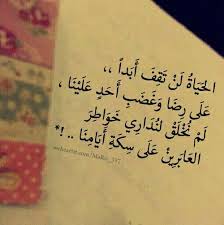 الحَيَاةُ لَنْ تَقِفَ أَبَداً ،،
عَلَى رِضَا وَغَضَبِ أَحَدٍ عَلَيْنَا ،
لَمْ نُخْلَقْ لنُدَارِي خَوَاطِرَ
العَابِرِينْ عَلَى سِكَةِ أَيَامِنَا .. !*